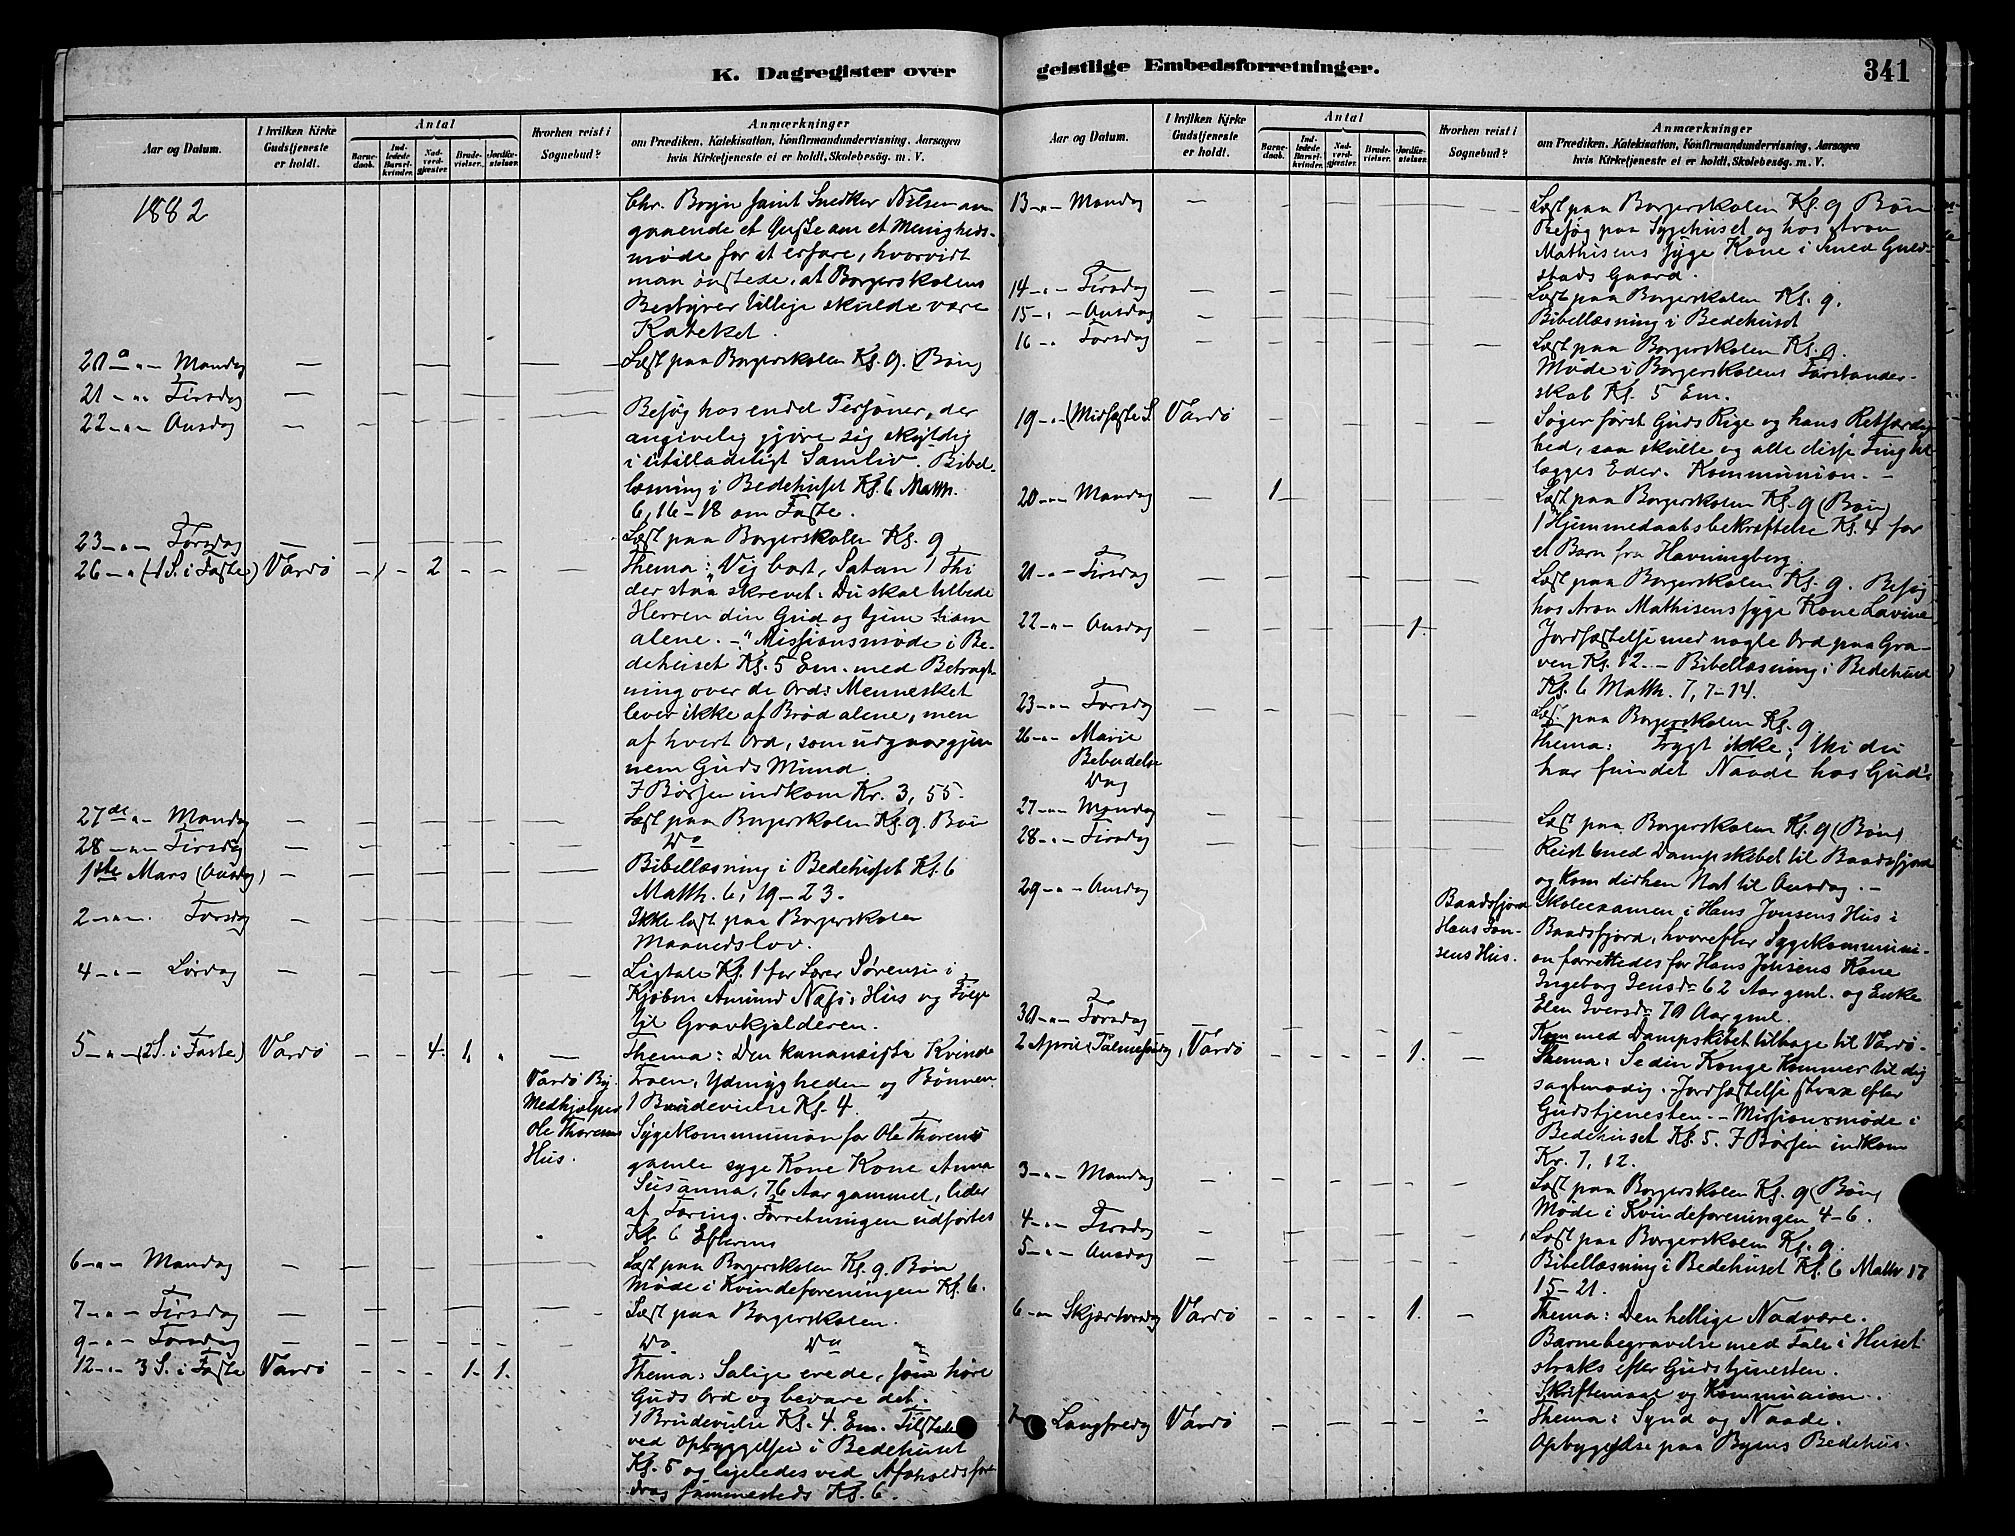 K. Dagregister over
Aar og Datum.
I hvilken Kirke Gudstjeneste er holdt.
Antal
Barnedaab.
Indledede Barselkvinder.
Nadverdgjæster.
Brudevielser.
Jordfæstelser.
Hvorhen reist i Sognebud?
Anmærkninger
om Prædiken, Katekisation, Konfirmandundervisning, Aarsagen
hvis Kirketjeneste ei er holdt, Skolebesög. m. V.
1882
Chr. Brejn samt Snedker Nilsen an-
gaaende et Ønske om et Menigheds-
møde for at erfare, hvorvidt
man ønskede, at Borgerskolens
Bestyrer tillige skulde være
Kateket.
20 - " - Mandag — Læst paa Borgerskolen Kl. 9. (Bøn)
21 - " - Tirsdag —
22 - " - Onsdag — Besøg hos endel Personer, der
angivelig gjøre sig skyldig
i utilladeligt Samliv. Bibel-
læsning i Bedehuset Kl. 6 Matth.
6, 16-18 om Faste.
23 - " - Torsdag — Læst paa Borgerskolen Kl. 9
26 - " (1 S. i Faste) Vardø - 1 - 2 - - - Thema: Vig bort, Satan! Thi
der staa skrevet: Du skal tilbede
Herren din Gud og tjene ham
alene. - " Missionsmøde i Be-
dehuset Kl. 5 Em. med Betragt-
ning over de Ord: Mennesket
lever ikke af Brød alene, men
af hvert Ord, som udgaar gjen-
nem Guds Mund.
I Bøssen indkom Kr. 3, 55.
27de " - Mandag — Læst paa Borgerskolen Kl. 9. Bøn
28 - " - Tirsdag — Do
1ste Mars (Onsdag) — Bibellæsning i Bedehuset Kl. 6
Matth. 6, 19-23.
2 - " - Torsdag — Ikke læst paa Borgerskolen
Maanedslov.
4 - " - Lørdag — Ligtale Kl. 1 for Lærer Sørensen i
Kjøbm. Amund Næss's Hus og Følge
til Gravkjelderen.
5 - " - (2 S. i Faste) Vardø - - 4 1 " - Thema: Den kananæiske Kvinde
Vardø By.
Medhjælper
Ole Thoresens
Hus.
Troen, Ydmygheden og Bønnen
1 Brudevielse Kl. 4.
Sygekommunion for Ole Thorens
gamle syge Kone Kone Anna
Susanna, 76 Aar gammel, lider
af Tæring. Forretningen udførtes
Kl. 6 Efterm
6 - " - Mandag — Læst paa Borgerskolen Kl. 9. Bøn
Møde i Kvindeforeningen Kl. 6.
7 - " - Tirsdag — Læst paa Borgerskolen.
9 - " - Torsdag — Do Do "
12 - " 3 S. i Faste Vardø - - - 1 1. Thema: Salige ere de, som høre
Guds Ord og bevare det.
1 Brudevielse Kl. 4. Em. Tilstede
ved Opbyggelsen i Bedehuset
Kl. 5 og ligeledes ved Afholdsfore-
drag sammesteds Kl. 6.
geistlige Embedsforretninger.
341
Aar og Datum.
I hvilken Kirke Gudstjeneste er holdt.
Antal
Barnedaab.
Indledede Barselkvinder.
Nadverdgjæster.
Brudevielser.
Jordfæstelser.
Hvorhen reist i Sognebud?
Anmærkninger
om Prædiken, Katekisation, Konfirmandundervisning, Aarsagen
hvis Kirketjeneste ei er holdt, Skolebesög. m. V.
13 - " - Mandag — Læst paa Borgerskolen Kl. 9 Bøn
Besøg paa Sygehuset og hos Aron
Mathisens syge Kone i Smed Guld-
stads Gaard.
14 - " - Tirsdag — Læst paa Borgerskolen Kl. 9.
15 - " - Onsdag — Bibellæsning i Bedehuset
16 - " Torsdag — Læst paa Borgerskolen Kl. 9.
Møde i Borgerskolens Forstander-
skab Kl. 5 Em.
19 - " (Midfaste S. Vardø - Søger først Guds Rige og hans Retfærdig-
hed, saa skulle og alle disse Ting til-
lægges Eder. Kommunion. -
20 - " - Mandag — 1 - Læst paa Borgerskolen Kl. 9 (Bøn)
1 Hjemmedaabsbekræftelse Kl. 4 for
et Barn fra Havningberg.
21 - " - Tirsdag — Læst paa Borgerskolen Kl. 9. Besøg
hos Aron Mathisens syge Kone Lavine
22 - " - Onsdag — 1. Jordfæstelse med nogle Ord paa Gra-
ven Kl. 12. - Bibellæsning i Bedehuset
Kl. 6 Matth. 7, 7-14.
23 - " - Torsdag — Læst paa Borgerskolen Kl. 9
26 - " - Marie Bebudelse Dag Thema: Frygt ikke, thi du
har fundet Naade hos Gud!
27 - " - Mandag — Læst paa Borgerskolen Kl. 9 (Bøn)
28 - " - Tirsdag — Reist med Dampskibet til Baadsfjord
og kom did hen Nat til Onsdag. -
29 - " - Onsdag
Baadsfjord
Hans Jon-
sens Hus.
Skoleexamen i Hans Jonsens Hus i
Baadsfjord, hvorefter Sygekommuni-
on forrettedes for Hans Jonsens Kone
Ingeborg Jensdr. 62 Aar gml. og Enke
Elen Iversdr 70 Aar gml.
30 - " - Torsdag — Kom med Dampskibet tilbage til Vardø.
2 April (Palmesøndag) Vardø - - - - 1. - Thema: Se din Konge kommer til dig
sagtmodig. Jordfæstelse strax efter
Gudstjenesten - - Missionsmøde i
Bedehuset Kl. 5. I Bøssen indkom
Kr. 7, 12.
3 - " - Mandag — Læst paa Borgerskolen Kl. 9 (Bøn)
Møde i Kvindeforeningen 4-6.
4 - " - Tirsdag — Læst paa Borgerskolen Kl. 9.
5 - " - Onsdag — Bibellæsning i Bedehuset Kl. 6 Matth. 17
15-21.
6 - " Skjærtorsdag Vardø - - - - 1. - Thema: Den hellige Nadvære.
Barnebegravelse med Tale i Huset
straks efter Gudstjenesten.
Skriftemaal og Kommunion.
7 - Langfredag Vardø - - - - - " Thema: Synd og Naade.
Opbyggelse paa Byens Bedehus.